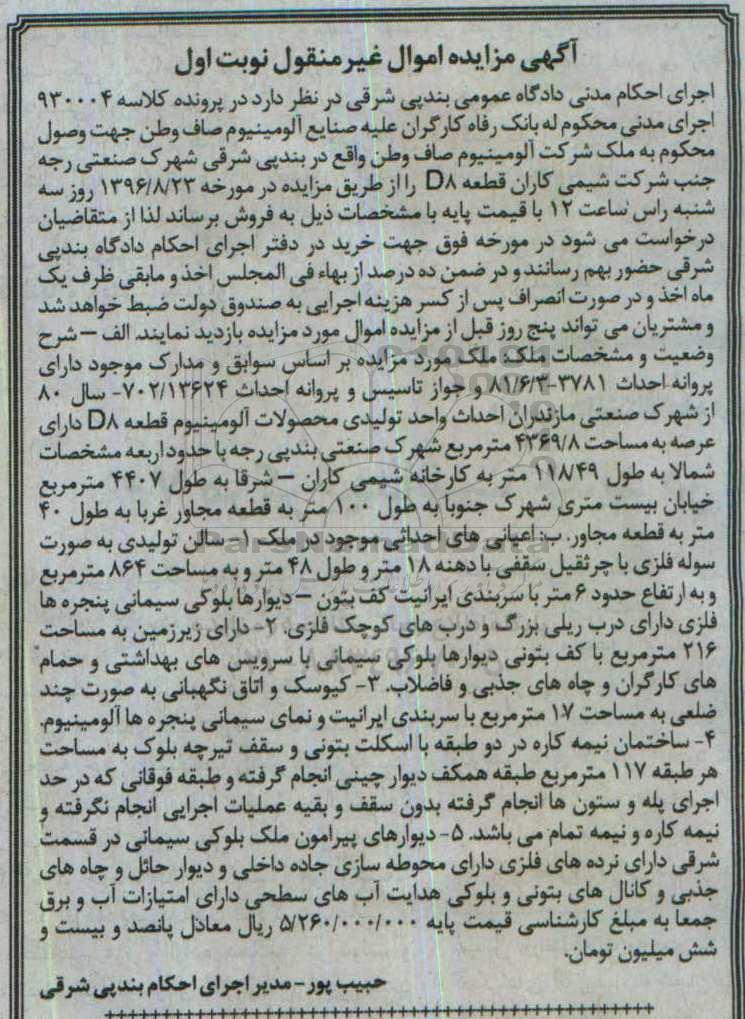 آگهی مزایده اموال غیر منقول نوبت اول
اجرای احکام مدنی دادگاه عمومی بندپی شرقی در نظر دارد در پرونده کلاسه ۹۳۰۰۰۴
اجرای مدنی محکوم له بانک رفاه کارگران علیه صنایع آلومینیوم صاف وطن جهت وصول
محکوم به ملک شرکت آلومینیوم صاف وطن واقع در بندپی شرقی شهرک صنعتی رجه
جنب شرکت شیمی کاران قطعه D۸ را از طریق مزایده در مورخه ۱۳۹۶/۸/۲۳ روز سه
شنبه راس ساعت ۱۲ با قیمت پایه با مشخصات ذیل به فروش برساند لذا از متقاضیان
درخواست می شود در مورخه فوق جهت خرید در دفتر اجرای احکام دادگاه بندپی
شرقی حضور بهم رسانند و در ضمن ده درصد از بهاء فی المجلس اخذ و مابقی ظرف یک
ماه اخذ و در صورت انصراف پس از کسر هزینه اجرایی به صندوق دولت ضبط خواهد شد
و مشتریان می تواند پنج روز قبل از مزایده اموال مورد مزایده بازدید نمایند. الف – شرح
وضعیت و مشخصات ملک: ملک مورد مزایده بر اساس سوابق و مدارک موجود دارای
پروانه احداث ۳۷۸۱-۸۱/۶/۳ و جواز تاسیس و پروانه احداث ۷۰۲/۱۳۶۲۴- سال ۸۰
از شهرک صنعتی مازندران احداث واحد تولیدی محصولات آلومینیوم قطعه D۸ دارای
عرصه به مساحت ۴۳۶۹/۸ مترمربع شهرک صنعتی بندپی رجه با حدود اربعه مشخصات
شمالا به طول ۱۱۸/۴۹ متر به کارخانه شیمی کاران – شرقا به طول ۴۴۰۷ مترمربع
خیابان بیست متری شهرک جنوبا به طول ۱۰۰ متر به قطعه مجاور غربا به طول ۴۰
متر به قطعه مجاور. ب: اعیانی های احداثی موجود در ملک ۱- سالن تولیدی به صورت
سوله فلزی با جرثقیل سقفی با دهنه ۱۸ متر و طول ۴۸ متر و به مساحت ۸۶۴ مترمربع
و به ارتفاع حدود ۶ متر با سربندی ایرانیت کف بتون – دیوارها بلوکی سیمانی پنجره ها
فلزی دارای درب ریلی بزرگ و درب های کوچک فلزی. ۲- دارای زیرزمین به مساحت
۲۱۶ مترمربع با کف بتونی دیوارها بلوکی سیمانی با سرویس های بهداشتی و حمام
های کارگران و چاه های جذبی و فاضلاب. ۳- کیوسک و اتاق نگهبانی به صورت چند
ضلعی به مساحت ۱۷ مترمربع با سربندی ایرانیت و نمای سیمانی پنجره ها آلومینیوم.
۴- ساختمان نیمه کاره در دو طبقه با اسکلت بتونی و سقف تیرچه بلوک به مساحت
هر طبقه ۱۱۷ مترمربع طبقه همکف دیوار چینی انجام گرفته و طبقه فوقانی که در حد
اجرای پله و ستون ها انجام گرفته بدون سقف و بقیه عملیات اجرایی انجام نگرفته و
نیمه کاره و نیمه تمام می باشد. ۵- دیوارهای پیرامون ملک بلوکی سیمانی در قسمت
شرقی دارای نرده های فلزی دارای محوطه سازی جاده داخلی و دیوار حائل و چاه های
جذبی و کانال های بتونی و بلوکی هدایت آب های سطحی دارای امتیازات آب و برق
جمعا به مبلغ کارشناسی قیمت پایه ۵/۲۶۰/۰۰۰/۰۰۰ ریال معادل پانصد و بیست و
شش میلیون تومان.
حبیب پور – مدیر اجرای احکام بندپی شرقی